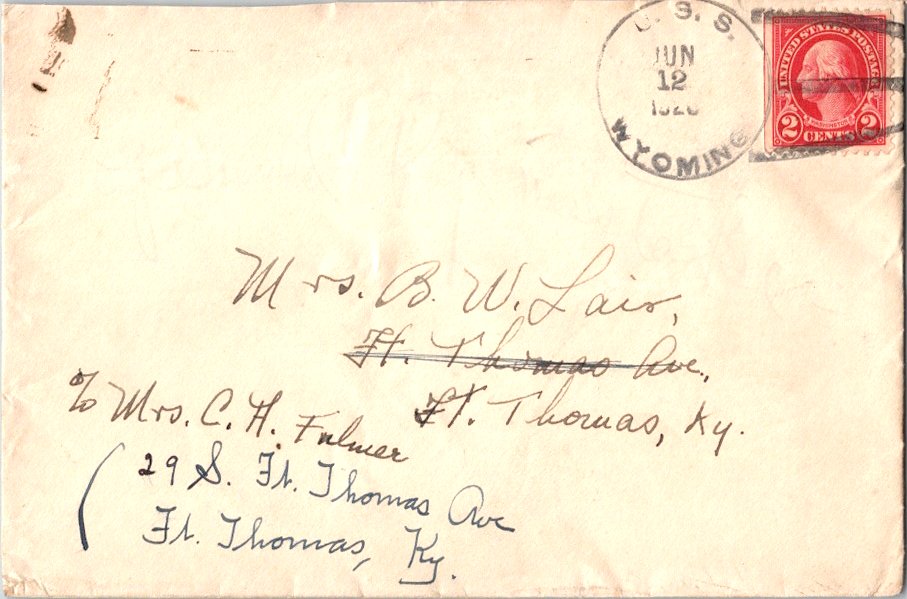 U. S. S.
JUN
12
WYOMING
UNITED STATES POSTAGE
2 CENTS 2
Mrs. B. W. Lair,
Ft. Thomas Ave.,
Ft. Thomas, Ky.
c/o Mrs. C. H. Fulmer
29 S. Ft. Thomas Ave
Ft. Thomas, Ky.